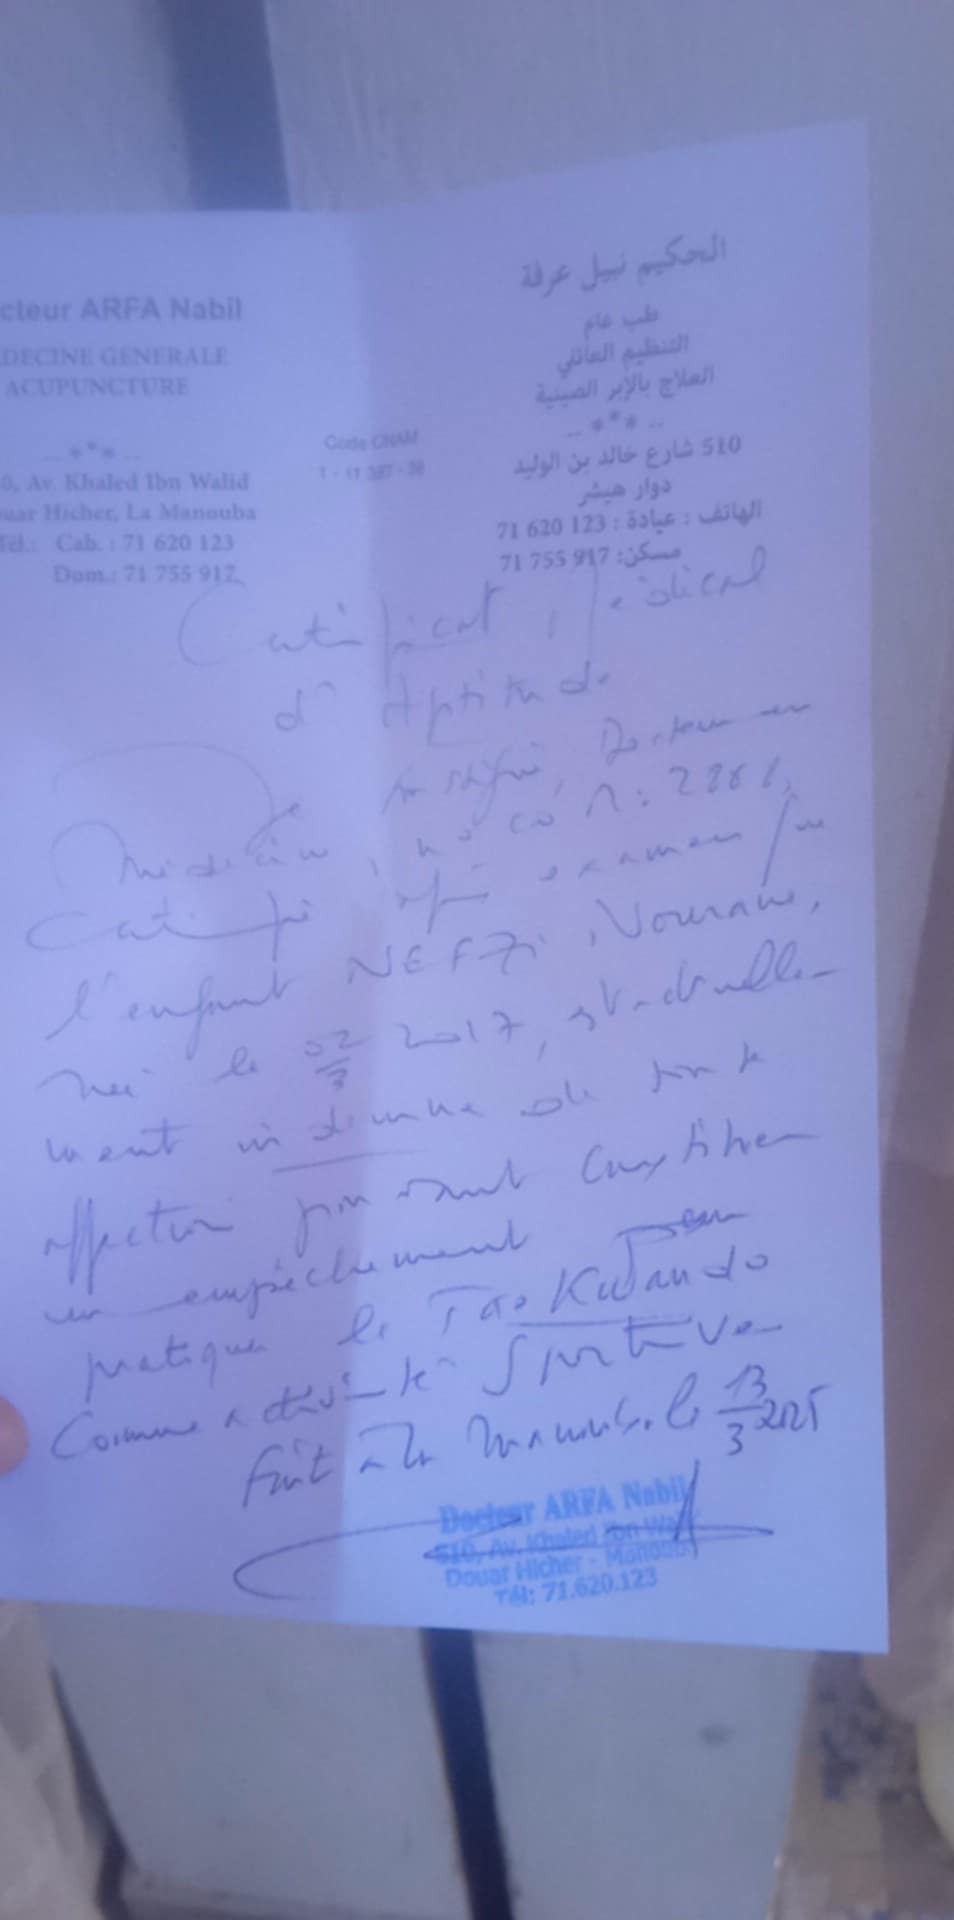 cteur ARFA Nabil
DECINE GENERALE
ACUPUNCTURE
..***..
0, Av. Khaled Ibn Walid
uar Hicher, La Manouba
Tél.: Cab. : 71 620 123
Dom.: 71 755 917
Code CNAM
الحكيم نبيل عرفة
طب عام
التنظيم العائلي
العلاج بالإبر الصينية
..***..
510 شارع خالد بن الوليد
دوار هيشر
الهاتف : عيادة : 123 620 71
مسكن: 917 755 71
Certificat Médical
d'Aptitude
Je soussigné, Docteur en
Médecine, n°
Certifie après examen que
l'enfant NEFZI
Née le 02/3 2017, est actuelle-
ment indemne de toute
affection pouvant constituer
un empêchement pour
pratiquer le Taekwando
Comme activité Sportive
Fait à la Manouba le 13/3 2025
Docteur ARFA Nabil
510, Av. Khaled Ibn Walid
Douar Hicher - Manouba
Tél: 71.620.123